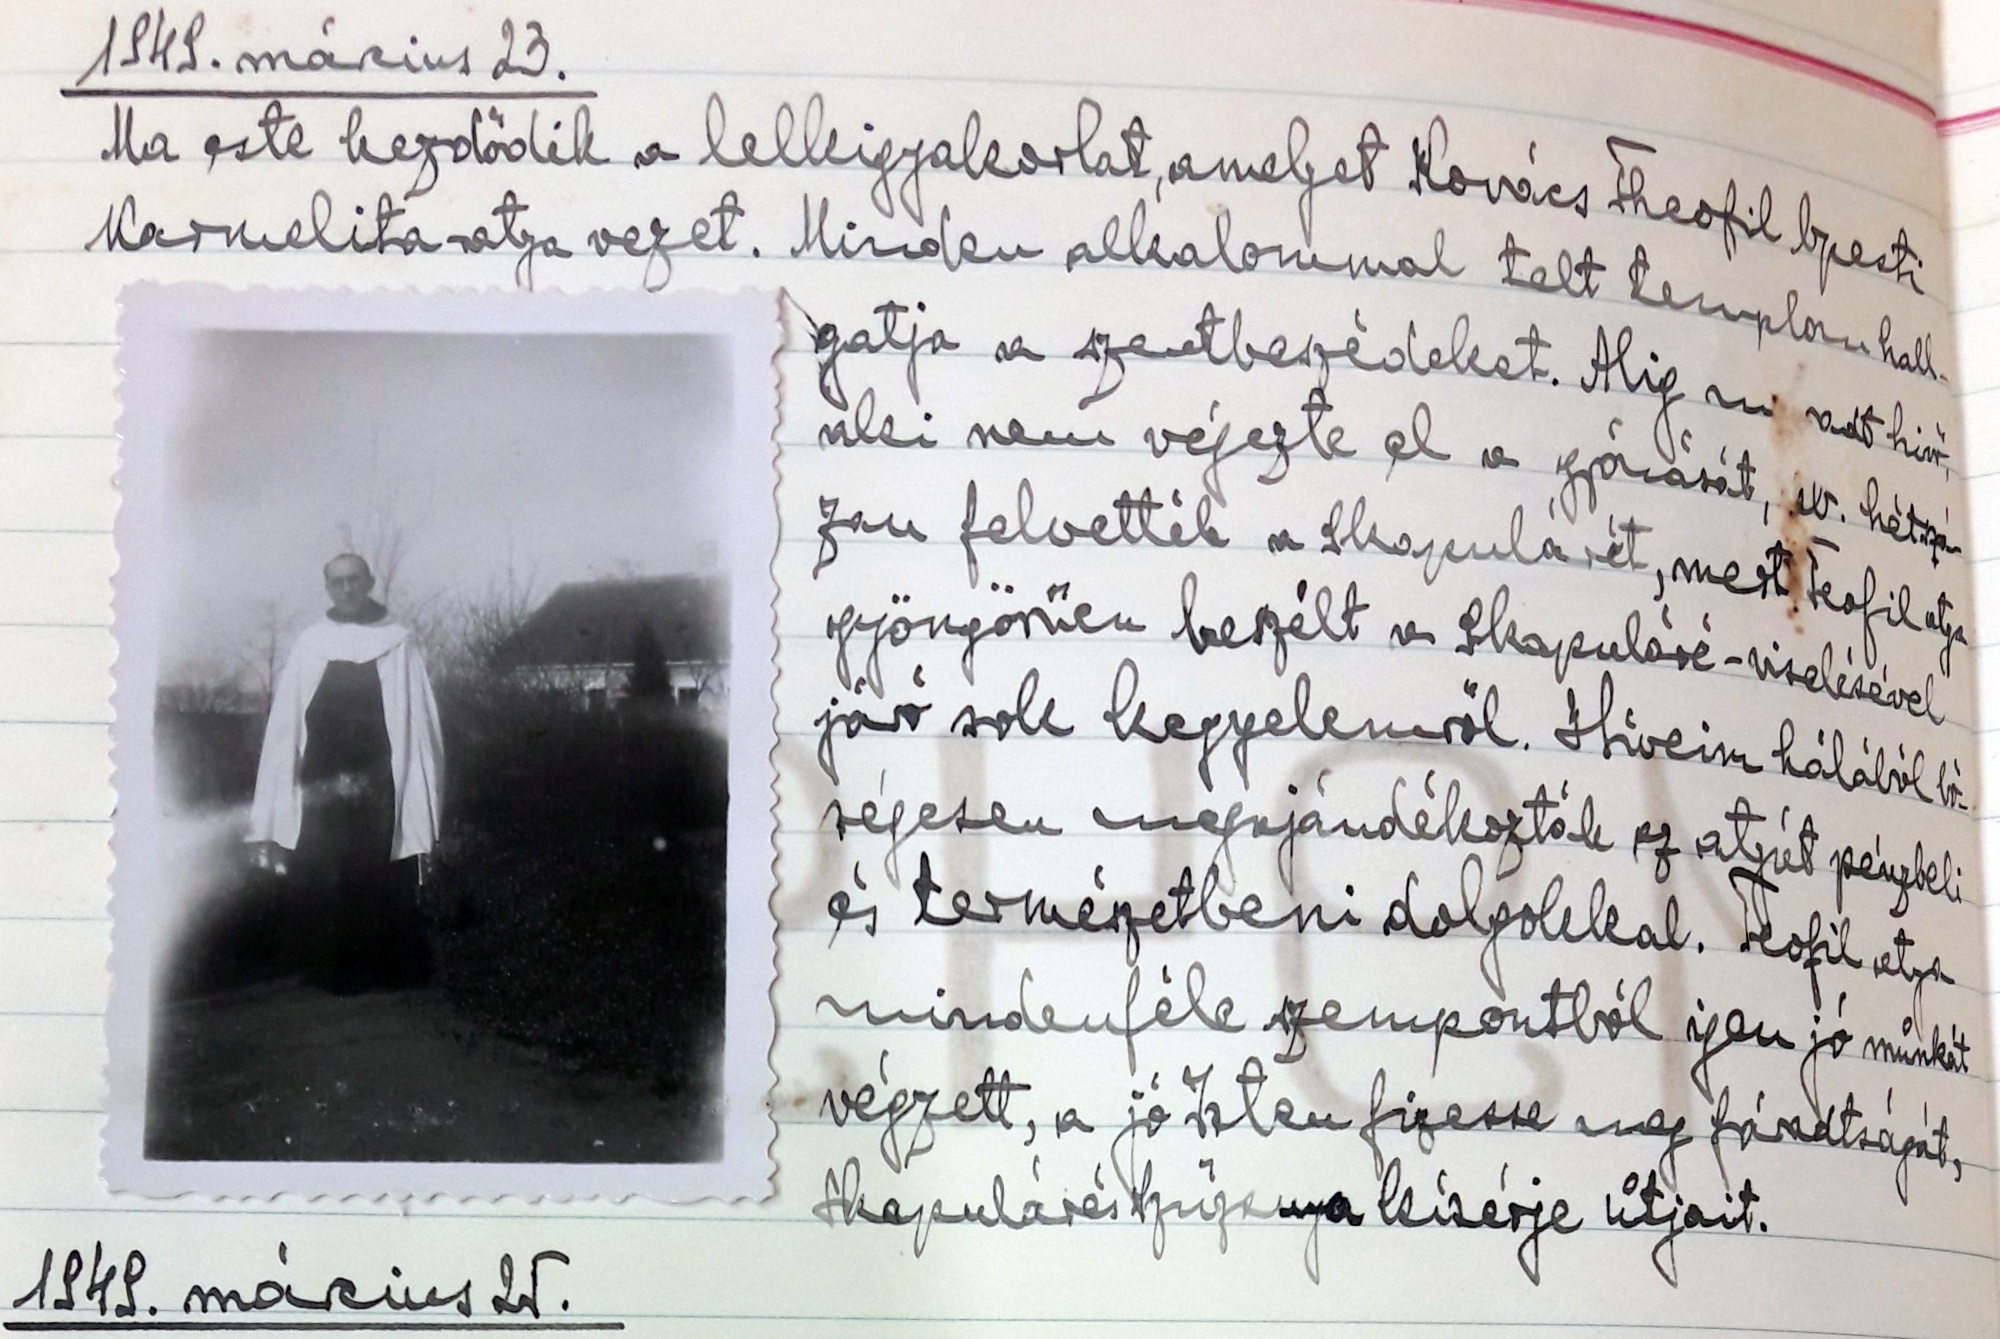 1949. március 23.
Ma este kezdődik a lelkigyakorlat, amelyet Kovács Theofil bpesti
Karmelita atya vezet. Minden alkalommal telt templom hall-
gatja a szentbeszédeket. Alig volt hivő,
aki nem végezte el a gyónását, hétszá-
zan felvették a Skapulárét, mert Teofil atya
gyöngyörűen beszélt a Skapuláré-viselésével
járó sok kegyelemről. Híveim hálából bő-
ségesen megajándékozták az atyát pénzbeli
és természetbeni dolgokkal. Teofil atya
mindenféle szempontból igen jó munkát
végzett, a jó Isten fizesse meg fáradtságát,
Skapulárés Szűzanya kisérje útjait.
1949. március 25.